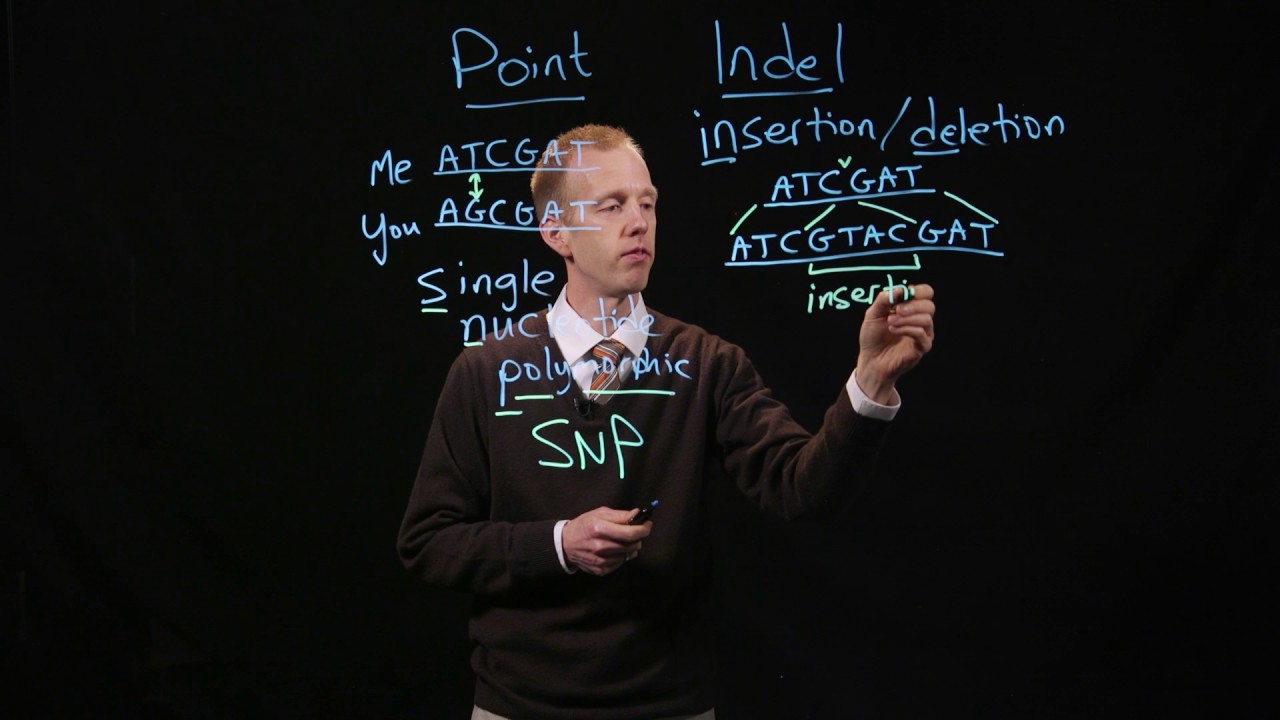 Point
Me ATCGAT
You AGCGAT
single
nucleotide
polymorphic
SNP
Indel
insertion/deletion
ATCGAT
ATCGTACGAT
inserti